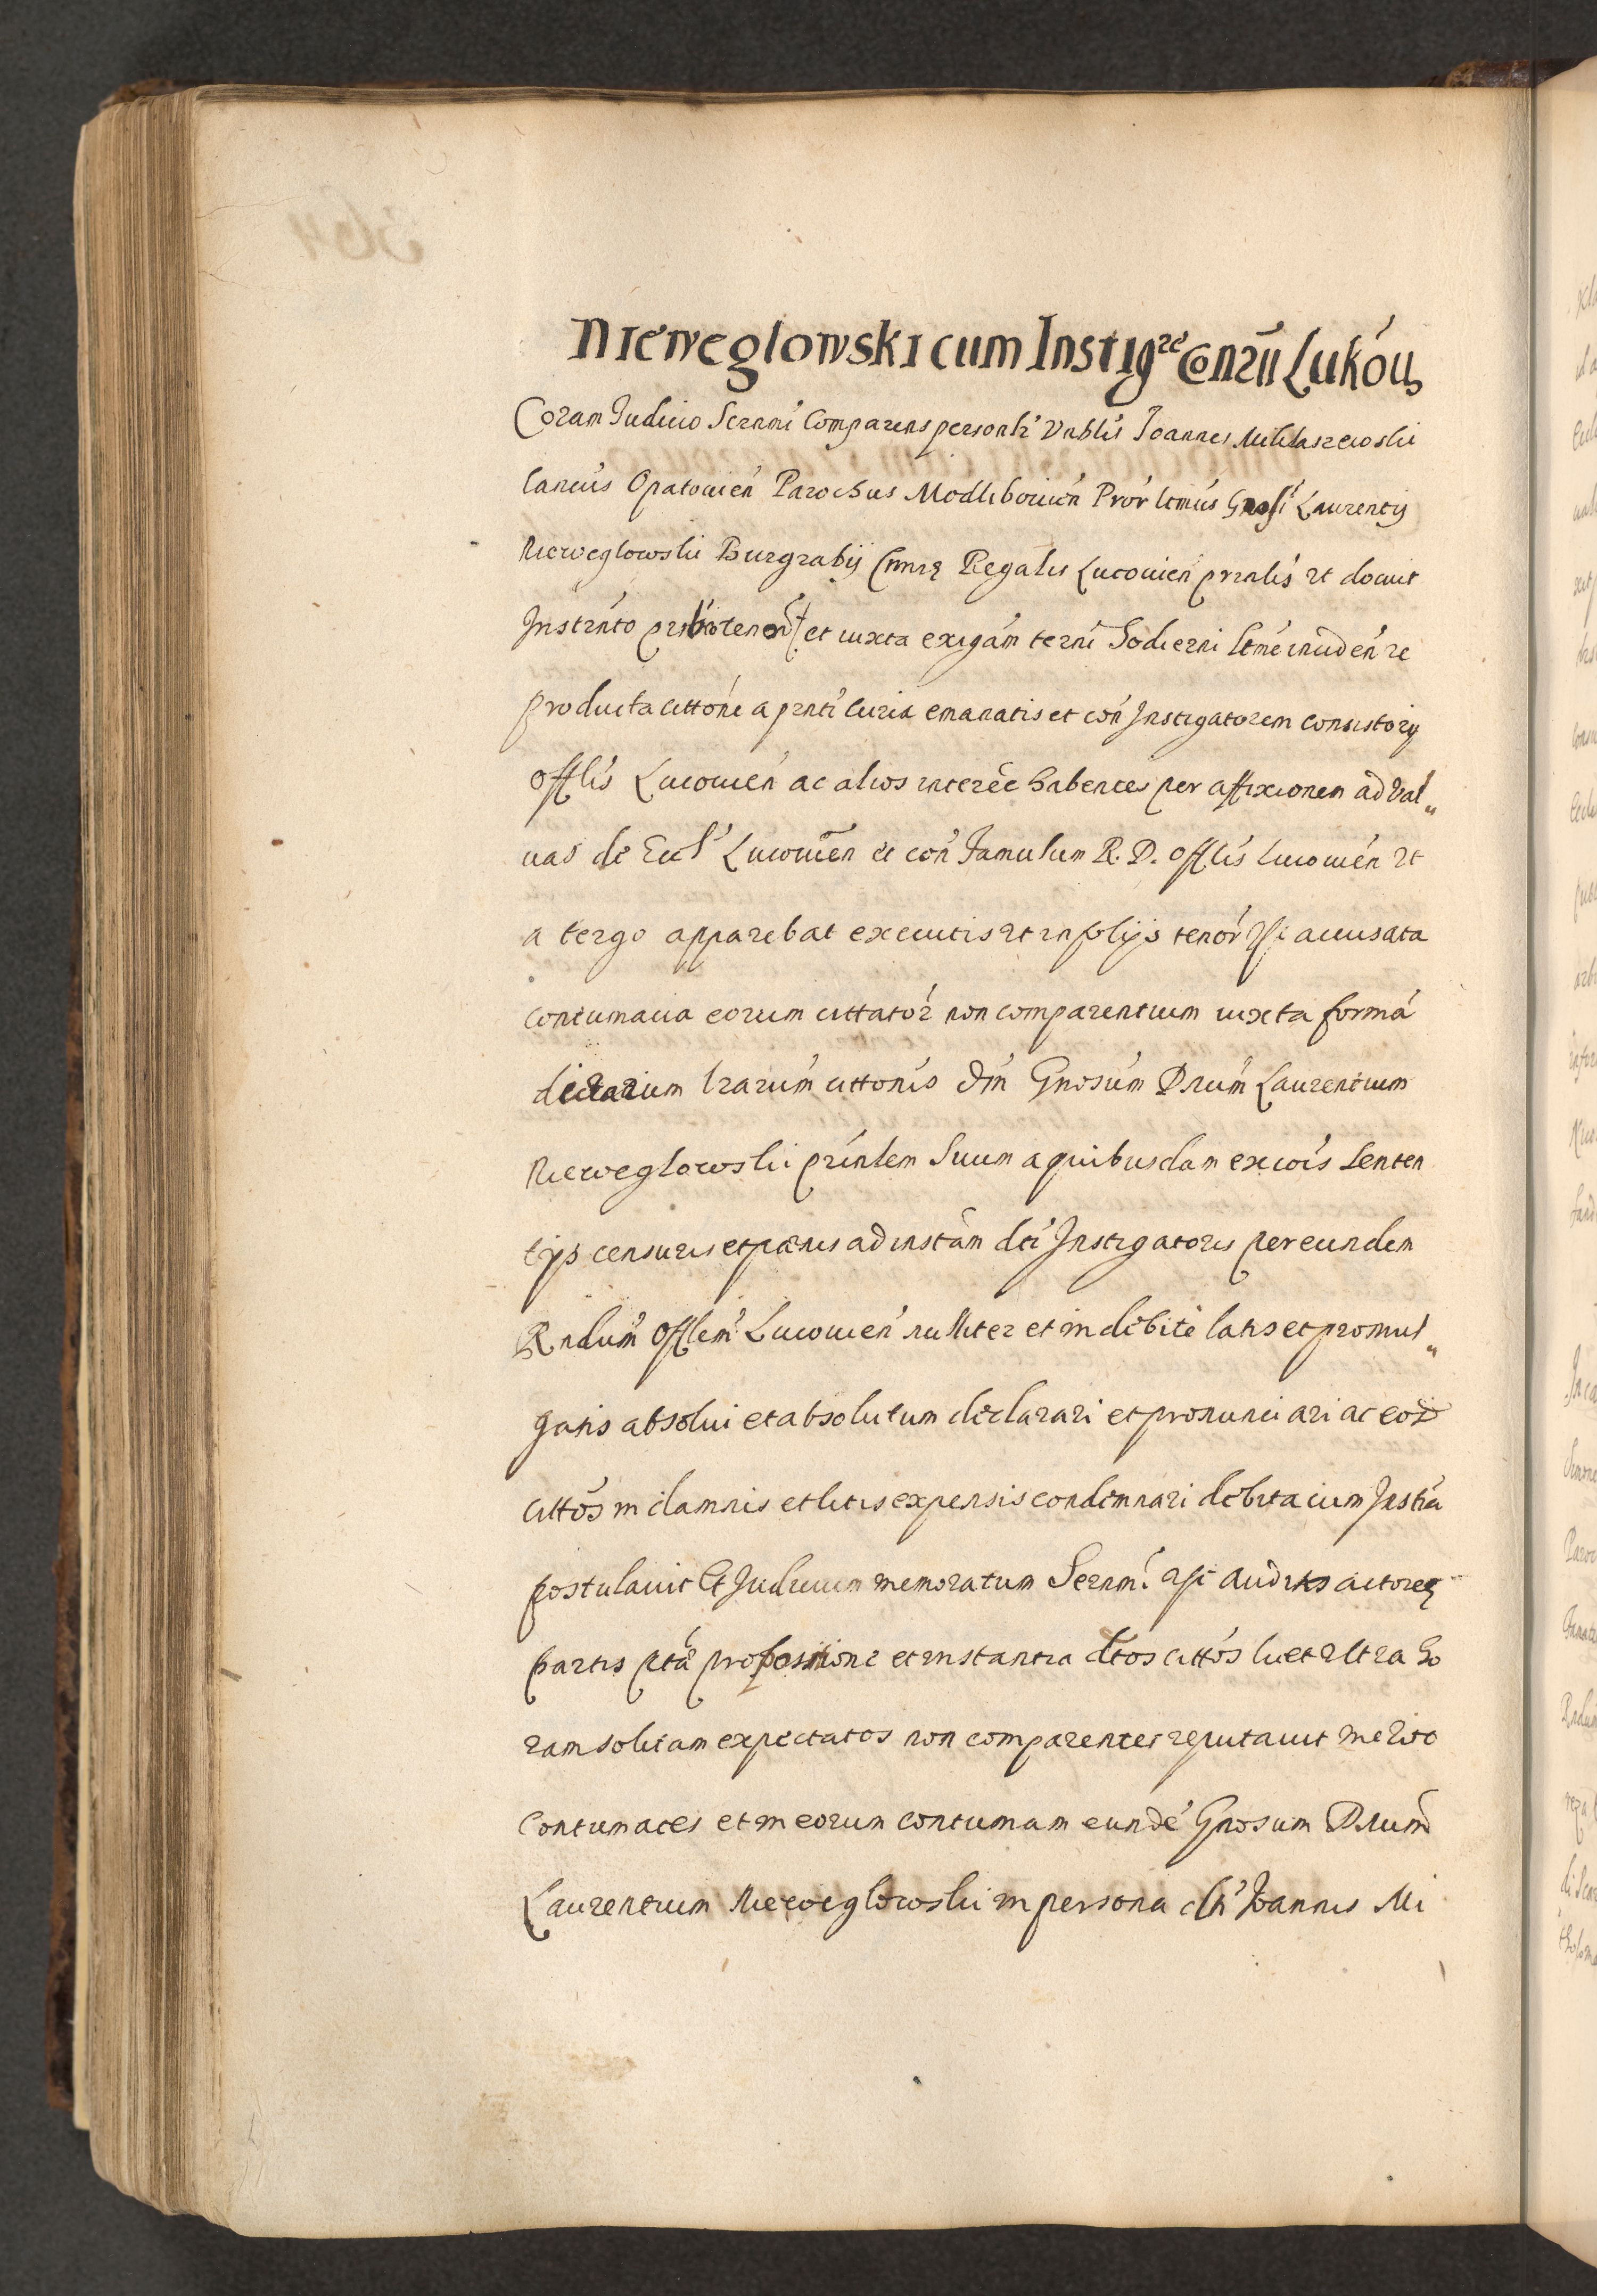 Nieweglowski cum Instigre Conrii Lukou
Coram Judicio Sernmi Comparens personlr Vnblis Joannes Mikłaszewski
Cancus Opatouien Parochus Modliboricen Pror ltmus Gnosi Laurentij
Nieweglowski Burgrabij Regalis Lucouien prinlis ut docuit
Instrnto et iuxta exigam termi hodierni
producta cittone a prnti curia emanatis et con Instigatorem consistorij
Offlis Lucouien ac alios interee habentes per affixionem ad Val„
uas de Eccl Lucouien et con Famulum R. D. Offlis Lucouien ut
a tergo apparebat executis ut in folijs tenor accusata
contumacia eorum cittator non comparentium iuxta forma
dictarum lrarum cittonis Gnosum Dnum Laurentium
Nieweglowski prinlem suum a quibusdam excois senten
tijs censuris et pænis ad instam dti Instigatoris per eundem
Rndum Offlem Lucouien nulliter et indebite latis et promul„
gatis absolui et absolutum declarari et pronunciari ac eosd
cittos in damnis et litis expensis condemnari debita cum Instia
postulauit Et Judicium memoratum Sernmi auditis actoreę
partis propositione et instantia dtos cittos licet ultra ho
ram solitam expectatos non comparentes reputauit merito
Contumaces et in eorum contumam eunde Gnosum Dnum
Laurentium Nieweglowski in persona dti Joannis Mi